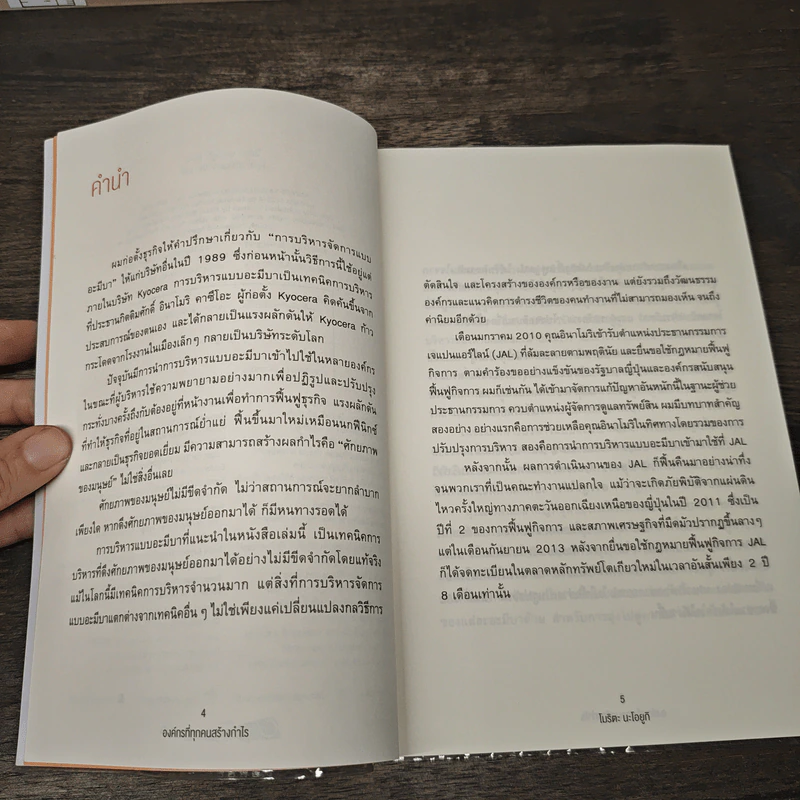 คำนำ
ผมก่อตั้งธุรกิจให้คำปรึกษาเกี่ยวกับ “การบริหารจัดการแบบ
อะมีบา” ให้แก่บริษัทอื่นในปี 1989 ซึ่งก่อนหน้านั้นวิธีการนี้ใช้อยู่แต่
ภายในบริษัท Kyocera การบริหารแบบอะมีบาเป็นเทคนิคการบริหาร
ที่ประธานกิตติมศักดิ์ อินาโมริ คาซึโอะ ผู้ก่อตั้ง Kyocera คิดค้นขึ้นจาก
ประสบการณ์ของตนเอง และได้กลายเป็นแรงผลักดันให้ Kyocera ก้าว
กระโดดจากโรงงานในเมืองเล็กๆ กลายเป็นบริษัทระดับโลก
ปัจจุบันมีการนำการบริหารแบบอะมีบาเข้าไปใช้ในหลายองค์กร
ในขณะที่ผู้บริหารใช้ความพยายามอย่างมากเพื่อปฏิรูปและปรับปรุง
กระทั่งบางครั้งถึงกับต้องอยู่ที่หน้างานเพื่อทำการฟื้นฟูธุรกิจ แรงผลักดัน
ที่ทำให้ธุรกิจที่อยู่ในสถานการณ์ย่ำแย่ ฟื้นขึ้นมาใหม่เหมือนนกฟีนิกซ์
และกลายเป็นธุรกิจยอดเยี่ยม มีความสามารถสร้างผลกำไรคือ “ศักยภาพ
ของมนุษย์” ไม่ใช่สิ่งอื่นเลย
ศักยภาพของมนุษย์ไม่มีขีดจำกัด ไม่ว่าสถานการณ์จะยากลำบาก
เพียงใด หากดึงศักยภาพของมนุษย์ออกมาได้ ก็มีหนทางรอดได้
การบริหารแบบอะมีบาที่แนะนำในหนังสือเล่มนี้ เป็นเทคนิคการ
บริหารที่ดึงศักยภาพของมนุษย์ออกมาได้อย่างไม่มีขีดจำกัดโดยแท้จริง
แม้ในโลกนี้มีเทคนิคการบริหารจำนวนมาก แต่สิ่งที่การบริหารจัดการ
แบบอะมีบาแตกต่างจากเทคนิคอื่น ๆ ไม่ใช่เพียงแค่เปลี่ยนแปลงกลวิธีการ
4
องค์กรที่ทุกคนสร้างกำไร
ตัดสินใจ และโครงสร้างขององค์กรหรือของงาน แต่ยังรวมถึงวัฒนธรรม
องค์กรและแนวคิดการดำรงชีวิตของคนทำงานที่ไม่สามารถมองเห็น จนถึง
ค่านิยมอีกด้วย
เดือนมกราคม 2010 คุณอินาโมริเข้ารับตำแหน่งประธานกรรมการ
เจแปนแอร์ไลน์ (JAL) ที่ล้มละลายตามพฤตินัย และยื่นขอใช้กฎหมายฟื้นฟู
กิจการ ตามคำร้องขออย่างแข็งขันของรัฐบาลญี่ปุ่นและองค์กรสนับสนุน
ฟื้นฟูกิจการ ผมก็เช่นกัน ได้เข้ามาจัดการแก้ปัญหาอันหนักนี้ในฐานะผู้ช่วย
ประธานกรรมการ ควบตำแหน่งผู้จัดการดูแลทรัพย์สิน ผมมีบทบาทสำคัญ
สองอย่าง อย่างแรกคือการช่วยเหลือคุณอินาโมริในทิศทางโดยรวมของการ
ปรับปรุงการบริหาร สองคือการนำการบริหารแบบอะมีบาเข้ามาใช้ที่ JAL
หลังจากนั้น ผลการดำเนินงานของ JAL ก็ฟื้นคืนมาอย่างน่าทึ่ง
จนพวกเราที่เป็นคณะทำงานแปลกใจ แม้ว่าจะเกิดภัยพิบัติจากแผ่นดิน
ไหวครั้งใหญ่ทางภาคตะวันออกเฉียงเหนือของญี่ปุ่นในปี 2011 ซึ่งเป็น
ปีที่ 2 ของการฟื้นฟูกิจการ และสภาพเศรษฐกิจที่มืดมัวปรากฏขึ้นลางๆ
แต่ในเดือนกันยายน 2013 หลังจากยื่นขอใช้กฎหมายฟื้นฟูกิจการ JAL
ก็ได้จดทะเบียนในตลาดหลักทรัพย์โตเกียวใหม่ในเวลาอันสั้นเพียง 2 ปี
8 เดือนเท่านั้น
5
โมริตะ นะโอยูกิ